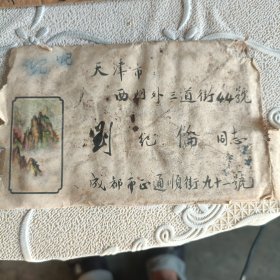 天津市
西门外三道街44號
劉 倫 同志
成都市正通順街九十 號